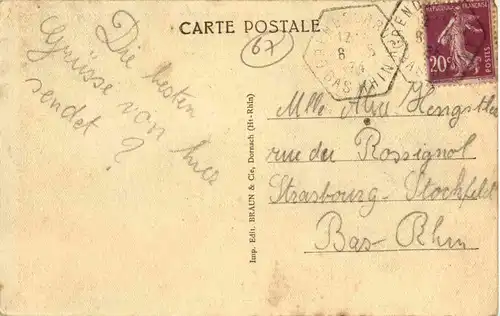 CARTE POSTALE
67
REPUBLIQUE FRANÇAISE
20c
12
8
BAS RHIN
Die besten
Grüsse von hier
sendet ?
Imp. Edit. BRAUN & Cie, Dornach (Ht-Rhin)
Mlle
rue du Rossignol
Strasbourg-Stockfeld
Bas-Rhin